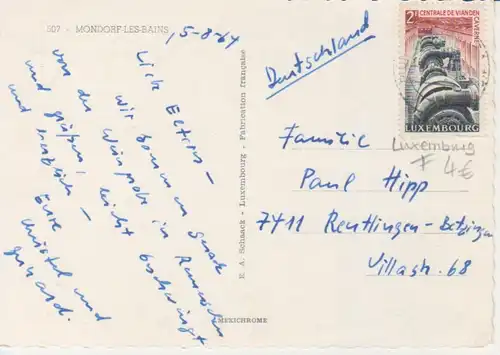 507 - MONDORF-LES-BAINS
15-8-64
Lieb Eltern -
wir kommen gerade
von der Weinprobe in Remischen
und grüßen leicht beschwingt
und herzlich -
Eure
Christel und
Gerhard.
E. A. Schaack - Luxembourg - Fabrication française
MEXICHROME
Deutschland
2F CENTRALE DE VIANDEN
CAVERNE
LUXEMBOURG
Luxemburg
F 4€
Familie
Paul Hipp
7411 Reutlingen - Betzingen
Villastr. 68